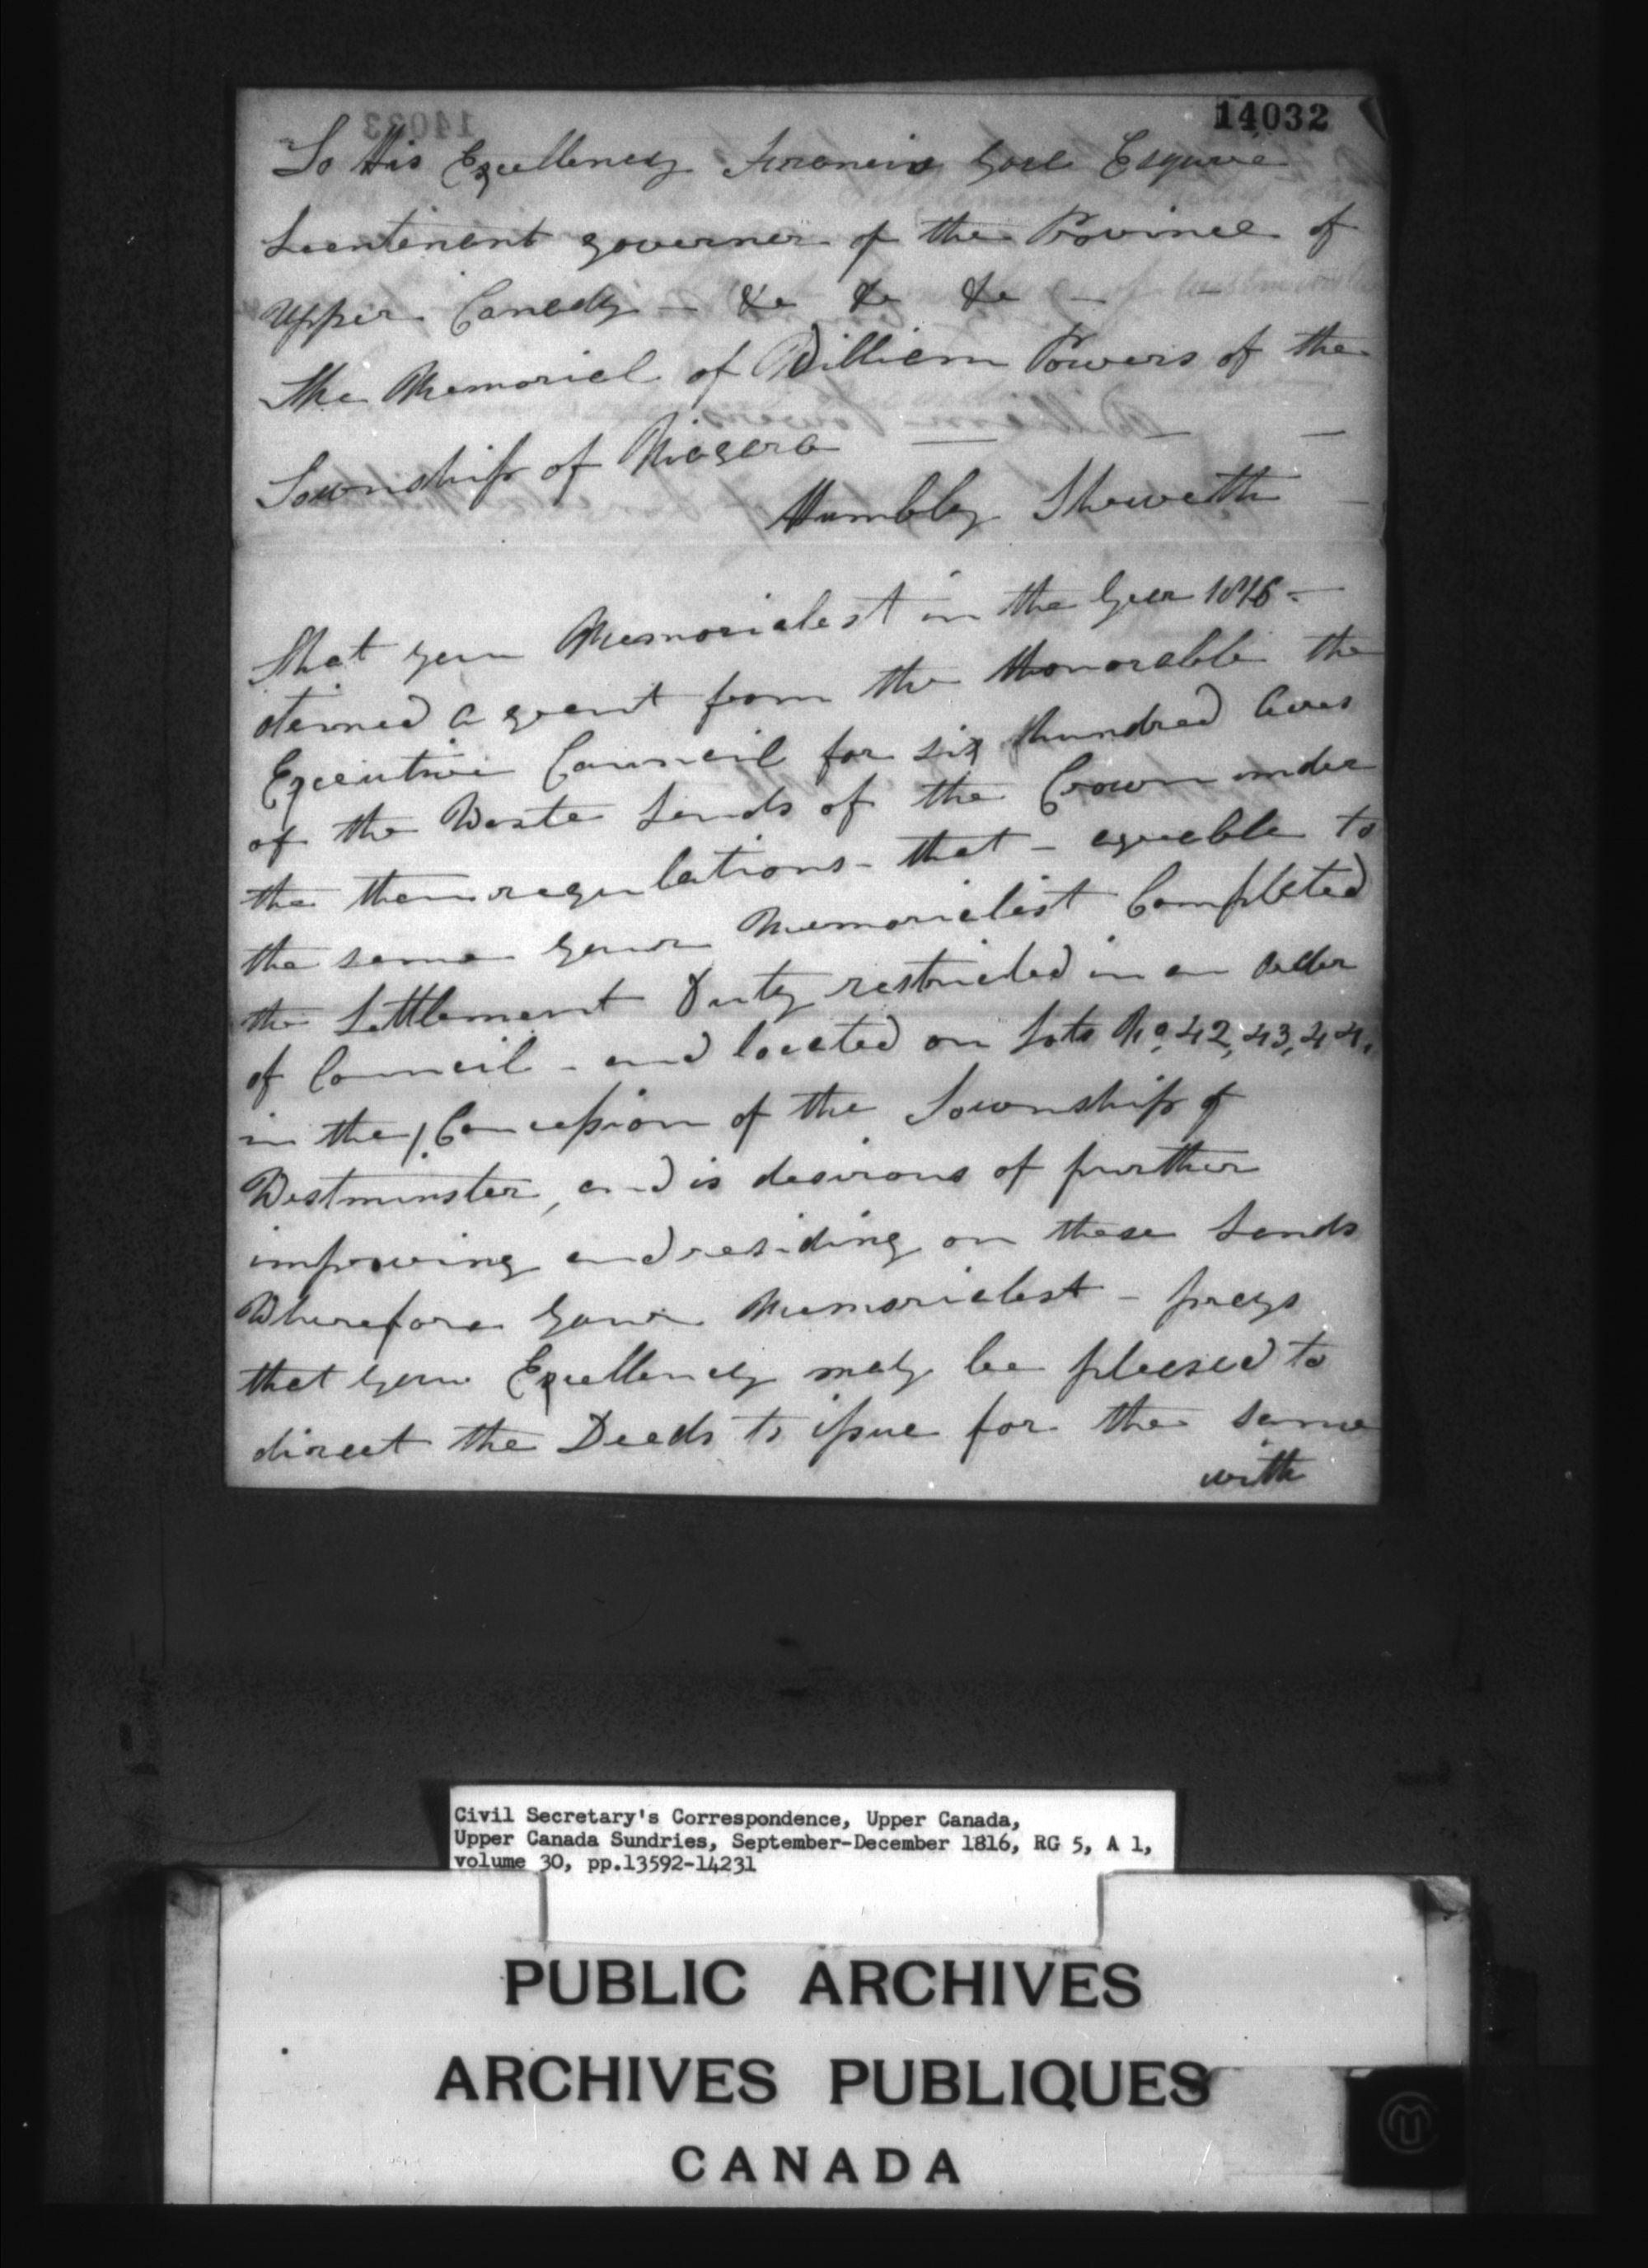 14032
To His Excellency Francis Gore Esquire
Lieutenant governer of the Province of
Upper Canady - &c &c &c -
The Memorial of William Powers of the
Township of Niagera
Humbly Sheweth
That your Memorialest in the Year 1816 -
a grant from the Honorable the
Executive Council for six Hundred Acres
of the Waste Lands of the Crown under
the then regulations - that - agreable to
the same your Memorialist Completed
the Settlement Duty restricted in an order
of Council - and located on Lots No. 42, 43, 44,
in the 1 Concession of the Township of
Westminster, and is desirous of further
improving and residing on these Lands
Wherefore your Memorialest - prays
that your Excellency may be pleased to
direct the Deeds to issue for the same
with
Civil Secretary's Correspondence, Upper Canada,
Upper Canada Sundries, September-December 1816, RG 5, A 1,
volume 30, pp.13592-14231
PUBLIC ARCHIVES
ARCHIVES PUBLIQUES
CANADA